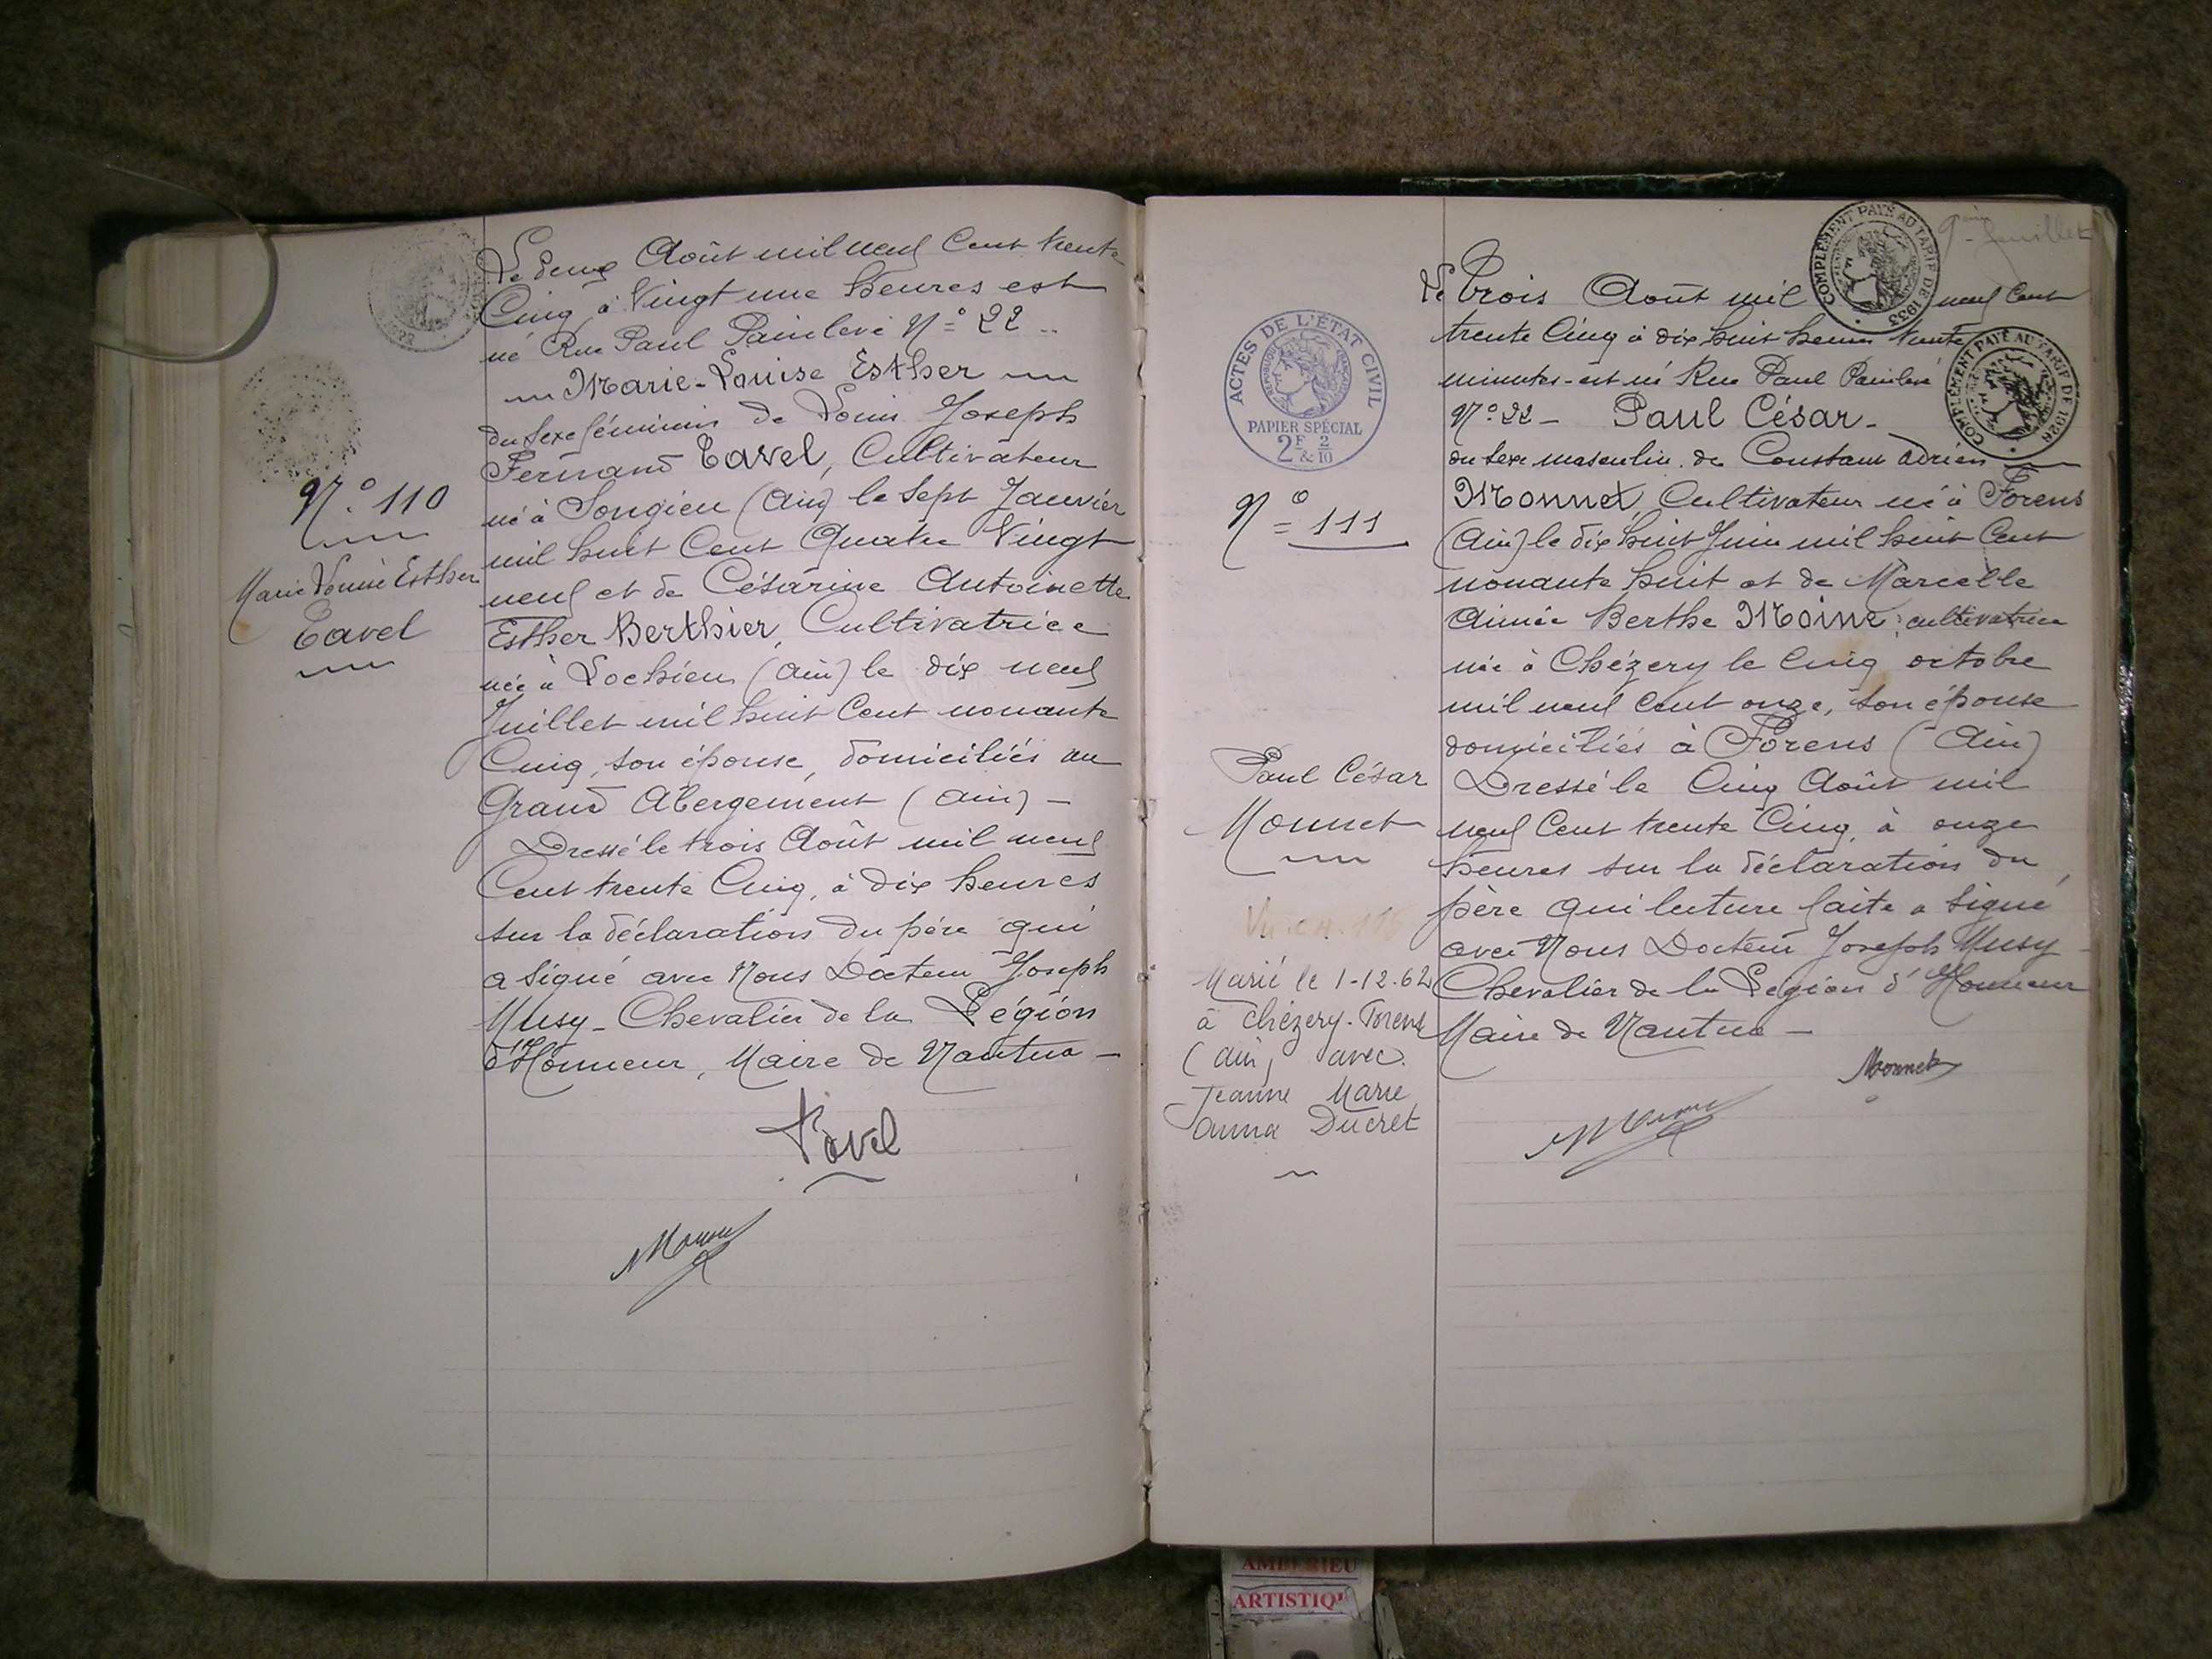 Le deux Août mil neuf Cent trente
Cinq, à Vingt une heures est
né Rue Paul Painlevé N° 22 -
Marie-Louise Esther
du sexe féminin de Louis Joseph
Fernand Tavel, Cultivateur
né à Songieu (Ain) le Sept Janvier
mil huit Cent Quatre Vingt
neuf et de Césarine Antoinette
Esther Berthier, Cultivatrice
née à Lochieu (Ain) le dix neuf
Juillet mil huit Cent nonante
Cinq, son épouse, domiciliés au
Grand Abergement (Ain) -
Dressé le trois Août mil neuf
Cent trente Cinq, à dix heures
sur la déclaration du père qui
a signé avec Nous Docteur Joseph
Musy - Chevalier de la Légion
d'Honneur, Maire de Nantua -
Tavel
N° 110
Marie Louise Esther
Tavel
9ème feuillet
COMPLÉMENT PAYÉ AU TARIF DE 1933
COMPLÉMENT PAYÉ AU TARIF DE 1926
ACTES DE L'ÉTAT CIVIL
RÉPUBLIQUE FRANÇAISE
PAPIER SPÉCIAL
2F & 2/10
N° 111
Paul César
Monnet
Marié le 1-12-62
à Chézery-Forens
(Ain) avec
Jeanne Marie
Anna Ducret
Le trois Août mil neuf Cent
trente Cinq à dix huit heures trente
minutes - est né Rue Paul Painlevé
N° 22 - Paul César -
du sexe masculin de Constant Adrien
Monnet, Cultivateur né à Forens
(Ain) le dix huit Juin mil huit Cent
nonante huit et de Marcelle
Aimée Berthe Moine, cultivatrice
née à Chézery le Cinq octobre
mil neuf Cent onze, son épouse
domiciliés à Forens (Ain)
Dressé le Cinq Août mil
neuf Cent trente Cinq, à onze
heures sur la déclaration du
père qui lecture faite a signé
avec Nous Docteur Joseph Musy
Chevalier de la Légion d'Honneur
Maire de Nantua -
Monnet
AMBERIEU
ARTISTIQU